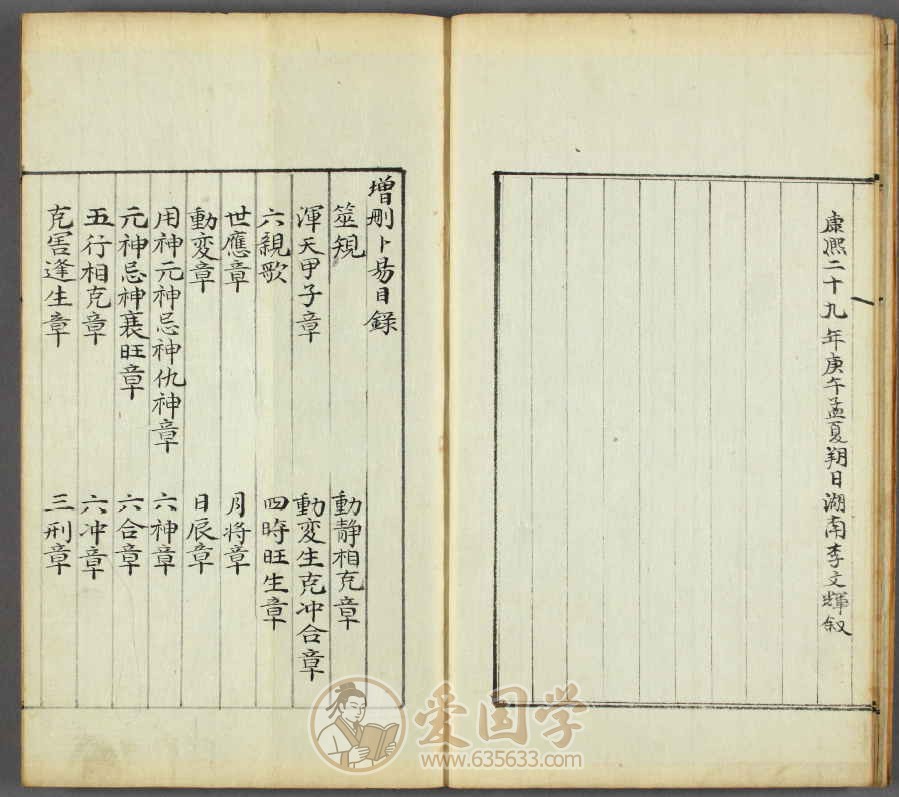 康熙二十九年庚午孟夏朔日湖南李文輝叙
增刪卜易目錄
筮䂓 動静相克章
渾天甲子章 動変生克冲合章
六親歌 四時旺生章
世應章 月将章
動変章 日辰章
用神元神忌神仇神章 六神章
元神忌神衰旺章 六合章
五行相克章 六冲章
克害逢生章 三刑章
爱国学
www.635633.com